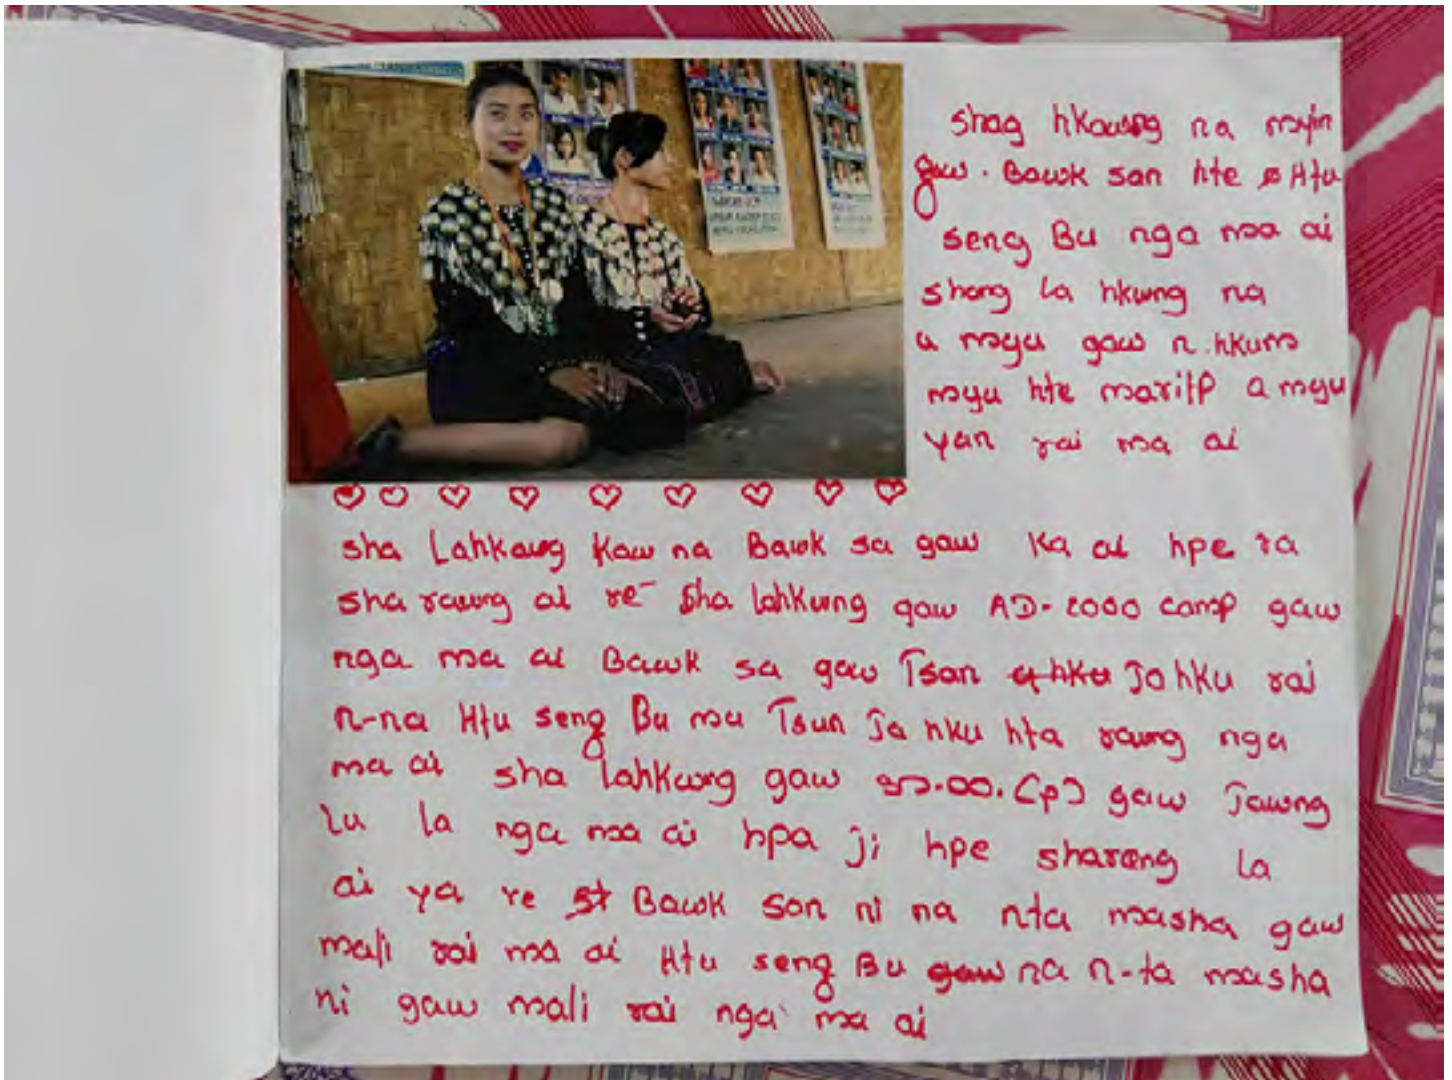 shag hkawng na myin
gaw. Bawk san hte Htu
seng Bu nga ma ai
shang la hkwng na
a myu gaw n.hkum
myu hte maritp a myu
yan rai ma ai
sha Lahkawng Kaw na Bawk sa gaw Ka ai hpe ra
sha rawng ai re sha lahkwng gaw AD-2000 camp gaw
nga ma ai Bawk sa gaw Tsan a hku Ja hku rai
n-na Htu seng Bu mu Tsun Ja hku hta rawng nga
ma ai sha lahkwng gaw အ.ထ.က (၃) gaw Jawng
lu la nga ma ai hpa ji hpe shareng la
ai ya re Bawk san ni na nta masha gaw
mali rai ma ai Htu seng Bu gaw na n-ta masha
ni gaw mali rai nga ma ai